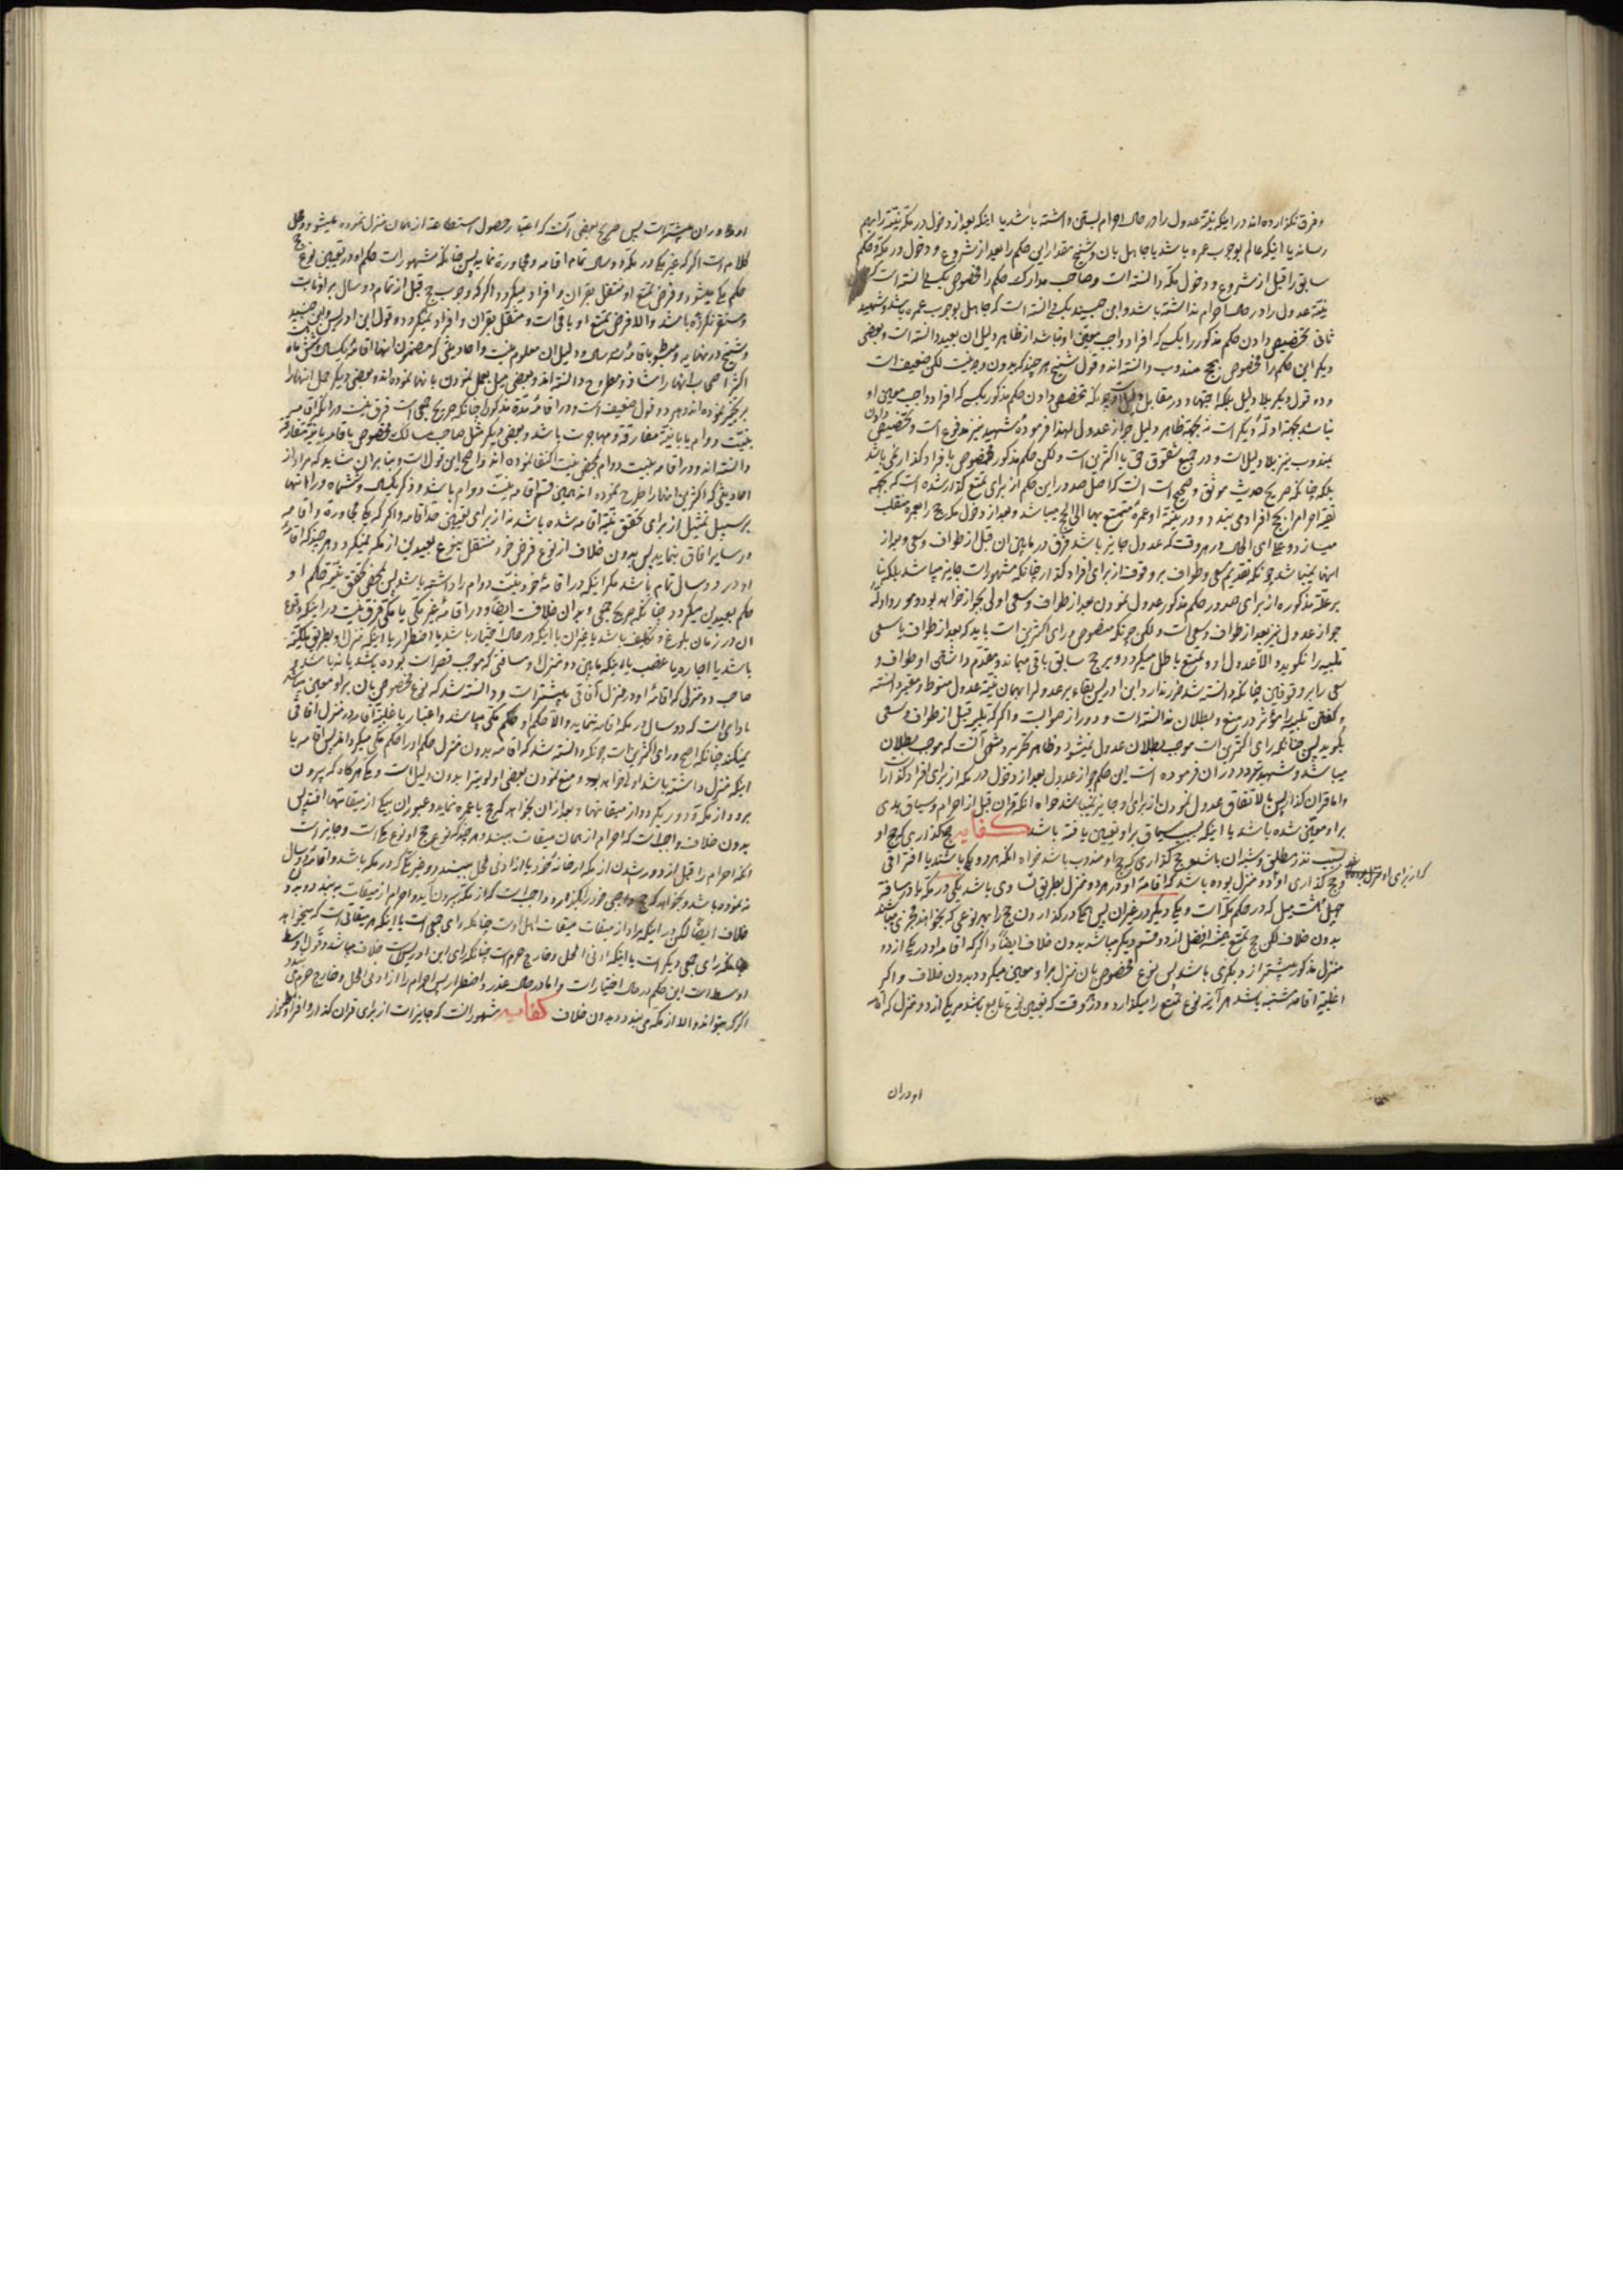 و فرق نگذارده اند در اینکه نیّة عدول را در حال احرام سابق داشته باشد یا اینکه بعد از دخول در مکّه نیّة را بهم
رساند یا اینکه عالم بوجوب عمره باشد یا جاهل بان و شیخ مقدار این حکم را بعد از شروع و دخول در مکّه و حکم
سابق را قبل از شروع و دخول مکّه دانسته است و صاحب مدارک حکم را مخصوص بکسی دانسته است که
نیّة عدول را در حال احرام نداشته باشد و ابن جنید بکسی دانسته است که جاهل بوجوب عمره باشد و شهید
ثانی تخصیص دادن حکم مذکور را بکسی که افراد واجب معیّن او نباشد از ظاهر دلیل ان بعید دانسته است و بعضی
دیگر این حکم را مخصوص بحج مندوب دانسته اند و قول شیخ هر چند که بدون وجه نیست لکن ضعیف است
و دو قول دیگر بلا دلیل بلکه اجتهاد در مقابل دلیل است تخصیص دادن حکم مذکور بکسی که افراد واجب معیّن او
نباشد بجهة ادلّهٔ دیگر است نه بجهة ظاهر دلیل جواز عدول لهذا فرمودهٔ شهید نیز مدفوع است و تخصیص دادن
بمندوب نیز بلا دلیل است و در جمیع شقوق حق با اکثرین است و لکن حکم مذکور مخصوص بافراد گذار نمی باشد
بلکه چنانکه صریح حدیث موثّق و صحیح است انست که اصل صدور این حکم از برای تمتع گذار شده است که بجهة
تقیّه احرام را بحج افراد می بندد و در نیّة او عمرهٔ متمتع بها الی الحج میباشد و بعد از دخول مکّه حج را بعمره منقلب
میسازد و علی ای الحال در هر وقت که عدول جایز باشد فرق در مابین ان قبل از طواف و سعی و بعد از
اینها نمیباشد چونکه تقدیم سعی و طواف بر وقوف از برای افراد گذار چنانکه مشهور است جایز میباشد بلکه بنا
بر علّت مذکوره از برای صدور حکم مذکور عدول نمودن بعد از طواف و سعی اولی بجواز خواهد بود و مورد ادلّه
جواز عدول نیز بعد از طواف و سعی است و لکن چونکه منصوص و رای اکثرین است باید که بعد از طواف یا سعی
تلبیه را نگوید و الّا عدول او و تمتع باطل میگردد و بر حج سابق باقی میماند و مقدّم داشتن او طواف و
سعی را بر وقوفین چنانکه دانسته شد ضرر ندارد و ابن ادریس بقاء بر عدول را بهمان نیّة عدول منوط و معتبر دانسته
و گفتن تلبیه را مؤثّر در منع و بطلان ندانسته است و دور از صواب است و اگر که تلبیه قبل از طواف و سعی
بگوید پس چنانکه رای اکثرین است موجب بطلان عدول نمیشود و ظاهر انست که موجب بطلان
میباشد و شهید تردد در ان فرموده است این حکم جواز عدول بعد از دخول در مکه از برای افراد گذار است
و اما قران گذار پس بالاتفاق عدول نمودن از برای او جایز نمیباشد خواه انکه قران قبل از احرام و سیاق هدی
بر او معیّن شده باشد یا اینکه بسبب سیاق بر او تعیین یافته باشد کفایه حج گذاری که حج او
بسبب نذر مطلق و شبه ان باشد و حج گذاری که حج او مندوب باشد خواه انکه هر دو مکّی باشند یا افاقی
و حج گذاری او دو منزل بوده باشد که اقامهٔ او در هر دو منزل بطریق تساوی باشد یکی در مکّه یا در مسافة
چهل هشت میل که در حکم مکّه است و یکی دیگر در غیر ان پس انها در گذاردن حج را بهر نوعی که بخواهند مخیّر میباشند
بدون خلاف لکن حج تمتع همیشه افضل از دو قسم دیگر میباشد بدون خلاف ایضاً و اگر که اقامه او در یکی از دو
منزل مذکور بیشتر از دیگری باشد پس نوع مخصوص بان منزل بر او معین میگردد بدون خلاف و اگر
اغلبیّة اقامه مشتبه باشد هر آینه نوع تمتع را میگذارد و در وقت که تعیین نوع تابع باشد هر یک از دو منزل که اقامه
او در ان
او در ان بیشتر است پس صریح بعضی انست که اعتبار حصول استطاعة از همان منزل نموده میشود و محل
کلام است اگر که غیر مکّی در مکّه دو سال تمام اقامه و مجاورة نماید پس چنانکه مشهور است حکم او در تعیین نوع حج
حکم مکّی میشود و فرض تمتع او منتقل بقران و افراد میگردد اگر که وجوب حج قبل از تمام دو سال بر او ثابت
و مستقر نگردیده باشد و الّا فرض تمتع او باقی است و منتقل بقران و افراد نمیگردد و قول ابن ادریس و ابن جنید
و شیخ در نهایه و مبسوط باقامهٔ سه سال و دلیل ان معلوم نیست و احادیثی که مضمون انها اقامهٔ یکسال و شش ماه است
اکثر اصحاب انها را شاذ و مطروح دانسته اند و بعضی میل بعمل نمودن بانها نموده اند و بعضی دیگر حمل انها را
بر تخییر نموده اند و هر دو قول ضعیف است و در اقامهٔ مدّة مذکوره چنانکه صریح جمعی است فرق نیست در اینکه اقامه
بنیّت دوام یا بنیّة مفارقة و مهاجرت باشد و بعضی دیگر مثل صاحب مسالک مخصوص باقامه با نیّة مفارقة
دانسته اند و در اقامه بنیت دوام بمحض نیّت اکتفا نموده اند و اصح این قول است و بنابران شاید که مراد از
احادیثی که اکثرین انها را طرح نموده اند همین قسم اقامه بنیّت دوام باشد و ذکر یکسال و ششماه در انها
بر سبیل تمثیل از برای تحقق نیّة اقامه شده باشد نه از برای تعیین حد اقامه و اگر که مکّی مجاورة و اقامه
در سایر افاق بنماید پس بدون خلاف از نوع فرض خود منتقل بنوع بعیدین از مکّه نمیگردد هر چند که اقامهٔ
او در دو سال تمام باشد مگر اینکه در اقامهٔ خود نیّت دوام را داشته باشد پس بمحض تحقق نیّة حکم او
حکم بعیدین میگردد چنانکه صریح جمعی و بدون خلاف است ایضاً و در اقامهٔ غیر مکّی یا مکّی فرق نیست در اینکه وقوع
ان در زمان بلوغ و تکلیف باشد یا غیر ان یا اینکه در حال اختیار باشد یا اضطرار یا اینکه منزل او بطریق ملکیّه
باشد یا اجاره یا غصب یا اینکه مابین دو منزل او مسافتی که موجب قصر است بوده باشد یا نه باشد و
صاحب دو منزلی که اقامهٔ او در منزل آفاقی بیشتر است و دانسته شد که نوع مخصوص بان بر او معین میباشد
مادامی است که دو سال در مکّه اقامه ننماید و الّا حکم او حکم مکّی میباشد و اعتبار باغلبیّة اقامه در منزل افاقی
نمیکند چنانکه اصح و رای اکثرین است چونکه دانسته شد که اقامه بدون منزل حکم او را حکم مکّی میگرداند پس اقامه با
اینکه منزل داشته باشد اولی خواهد بود و منع نمودن بعضی اولویّت را بدون دلیل است و مکّی هر گاه که بیرون
برود از مکّه و دور بگردد از میقاتها و بعد از ان بخواهد که حج یا عمره نماید و عبور ان بیکی از میقاتها افتد پس
بدون خلاف واجب است که احرام از همان میقات ببندد هر چند که نوع حج او نوع مکّی است و جایز است
انکه احرام را قبل از دور شدن از مکه از خانهٔ خود یا از ادنی الحل ببندد و غیر مکّی که در مکّه باشد و اقامهٔ دو سال
ننموده باشد و بخواهد که حج واجبی خود را بگذارد واجب است که از مکّه بیرون آید و احرام از میقات ببندد بدون
خلاف ایضاً لکن در اینکه مراد از میقات میقات اهل اوست چنانکه رای جمعی است یا اینکه هر میقاتی است که میخواهد
چنانکه رای جمعی دیگر است یا اینکه ادنی الحل و خارج حرم است چنانکه رای ابن ادریس است خلاف میباشد و قول اوسط
اوسط است این حکم در حال اختیار است و اما در حال عذر و اضطرار پس احرام را از ادنی الحل و خارج حرم می بندد
اگر که بتواند و الا از مکّه می بندد بدون خلاف کفایه مشهور انست که جایز است از برای قران گذار و افراد گذار